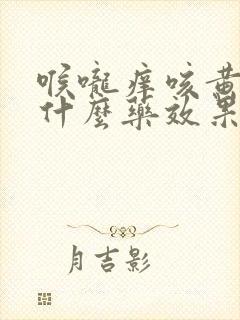 喉嚨痒咳黄
什麼藥效果
月吉影